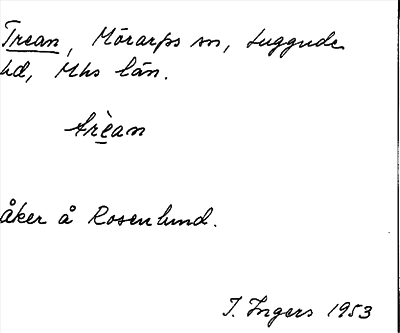 Trean, Mörarps sn, Luggude
hd, Mhs län.
trèan
åker å Rosenlund.
I. Ingers 1953